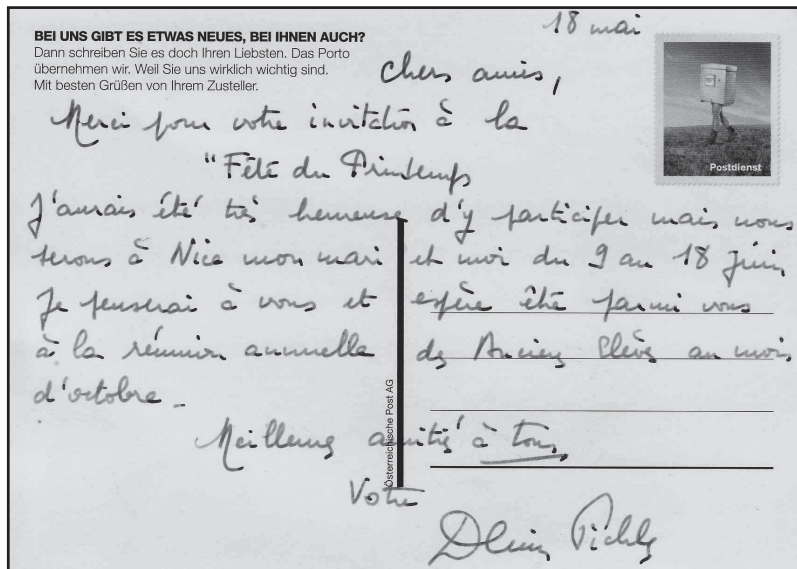 BEI UNS GIBT ES ETWAS NEUES, BEI IHNEN AUCH?
Dann schreiben Sie es doch Ihren Liebsten. Das Porto
übernehmen wir. Weil Sie uns wirklich wichtig sind.
Mit besten Grüßen von Ihrem Zusteller.
18 mai
Postdienst
Chers amis,
Merci pour votre invitation à la
"Fête du Printemps
J'aurais été très heureuse d'y participer mais nous
serons à Nice mon mari et moi du 9 au 18 Juin
Je penserai à vous et espère être parmi vous
à la réunion annuelle des Anciens Elèves au mois
d'octobre -
Meilleures amitiés à tous,
Votre
Österreichische Post AG